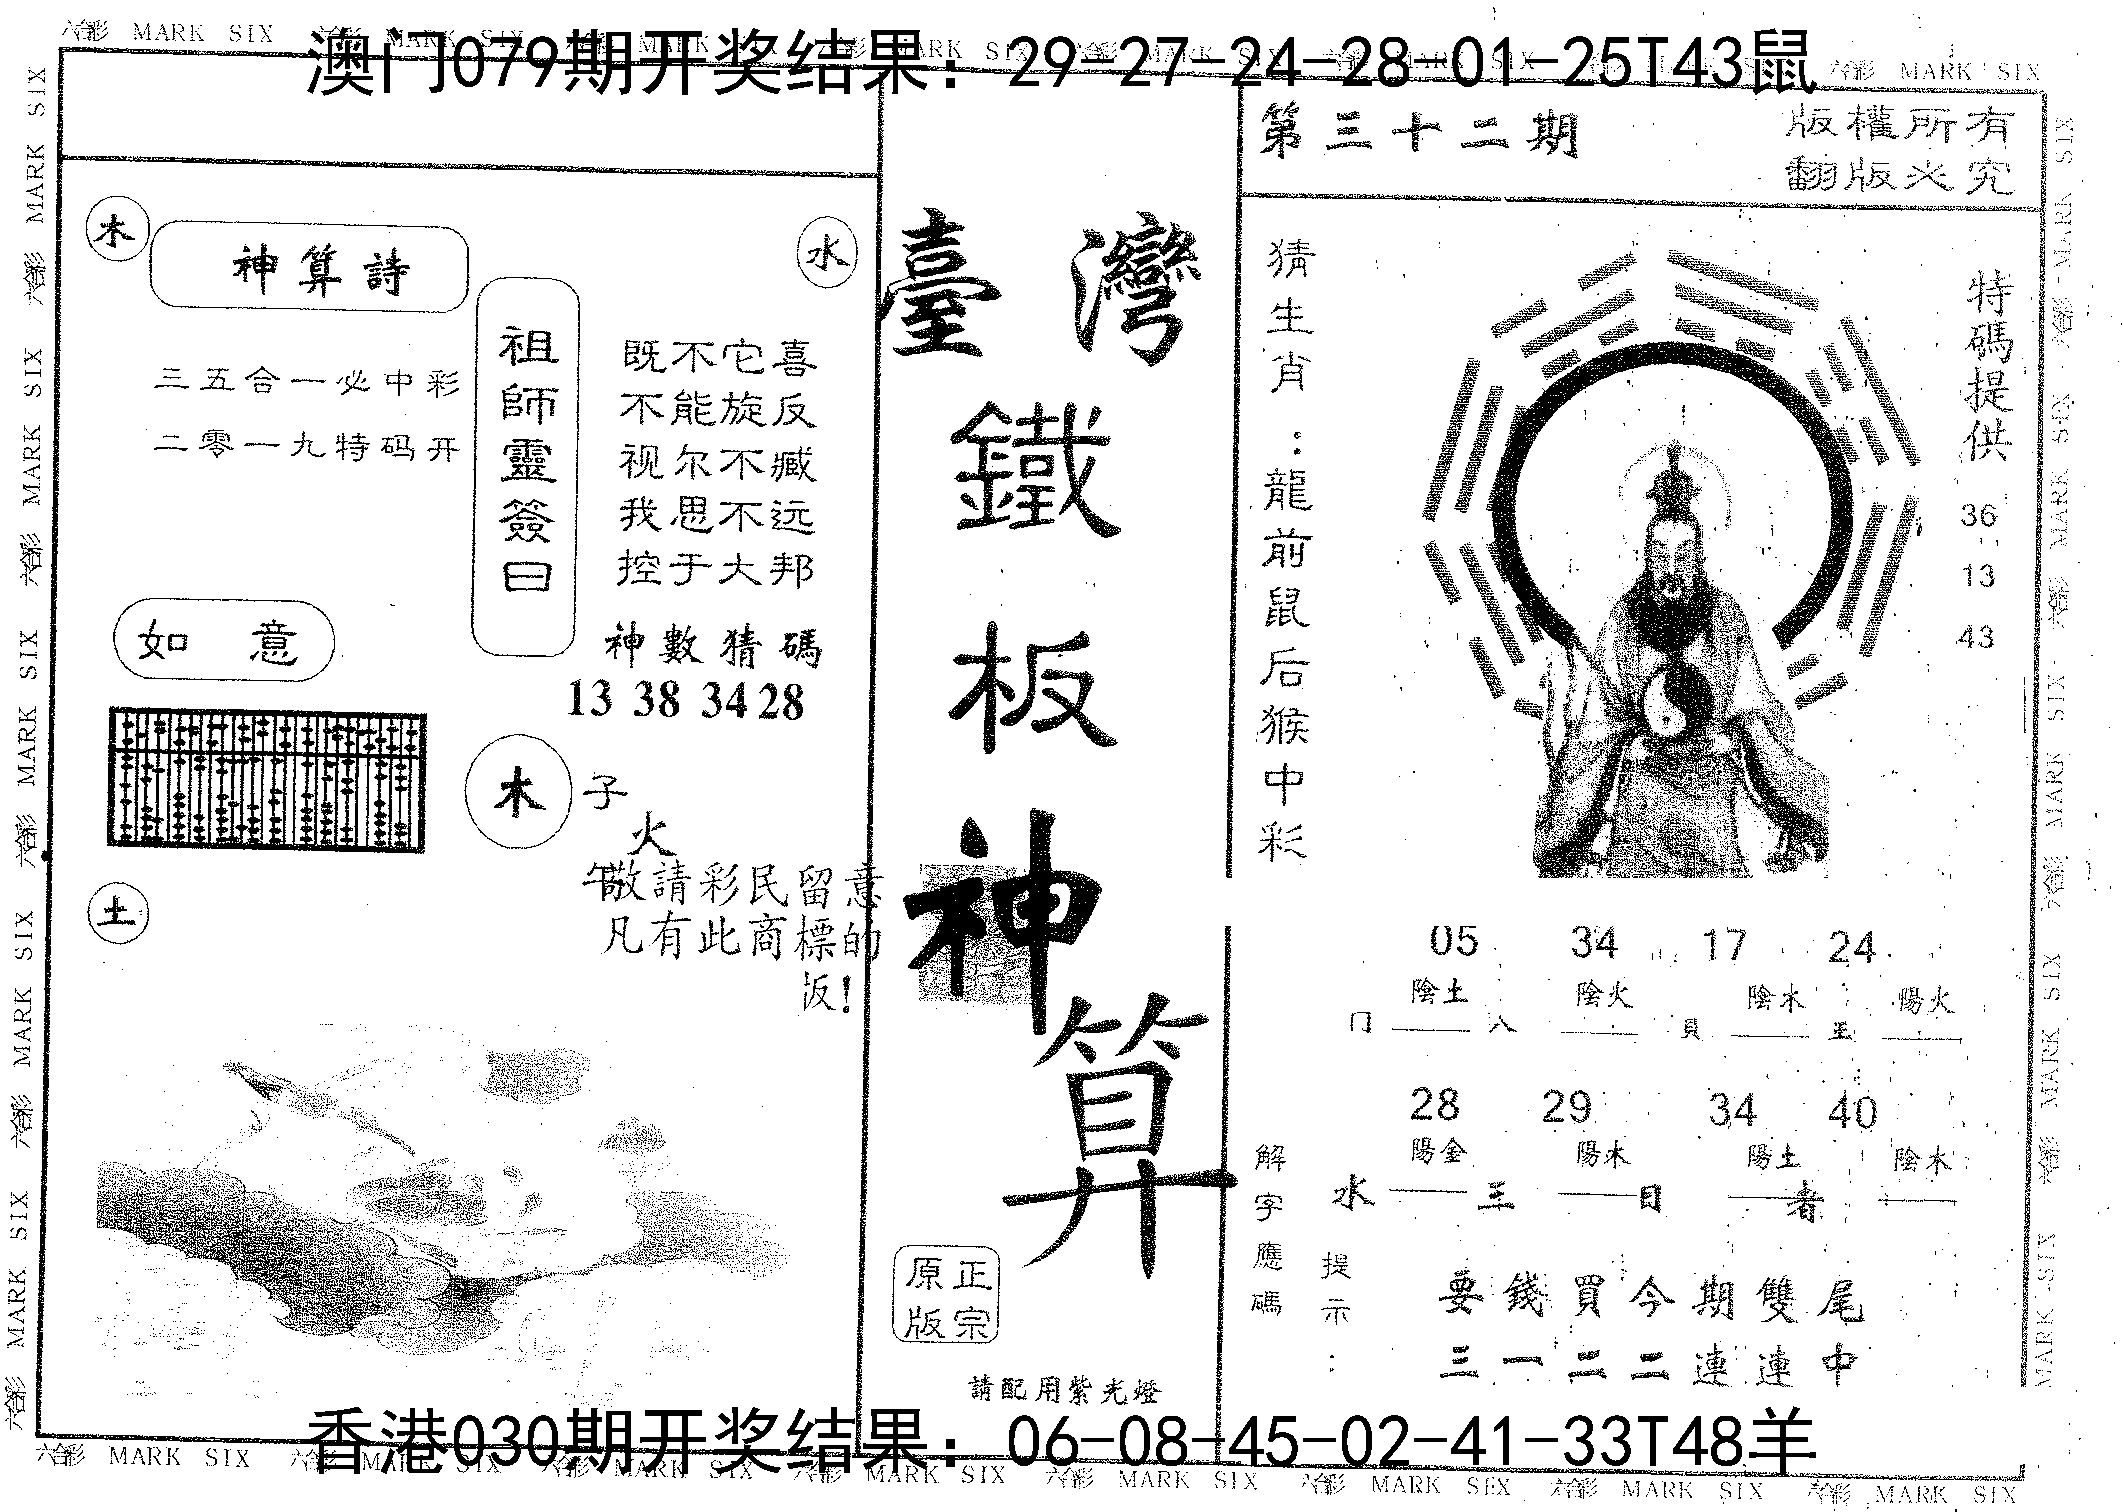 澳门079期开奖结果：29-27-24-28-01-25T43鼠
六合彩 MARK SIX
第三十二期
版權所有
翻版必究
木
神算詩
三五合一必中彩
二零一九特码开
水
祖師靈簽曰
既不它喜
不能旋反
视尔不臧
我思不远
控于大邦
神數猜碼
13 38 34 28
如意
木
子
火
午
敬請彩民留意
凡有此商標的
土
臺灣
鐵
板
神
算
原正
版宗
請配用紫光燈
猜生肖：龍前鼠后猴中彩
特碼提供
36
13
43
05 34 17 24
陰土 陰火 陰水 陽火
门 八 貝 玉
28 29 34 40
陽金 陽木 陽土 陰木
水 三 日 者
解字應碼
提示：
要錢買今期雙尾
三一二二連連中
香港030期开奖结果：06-08-45-02-41-33T48羊
六合彩 MARK SIX